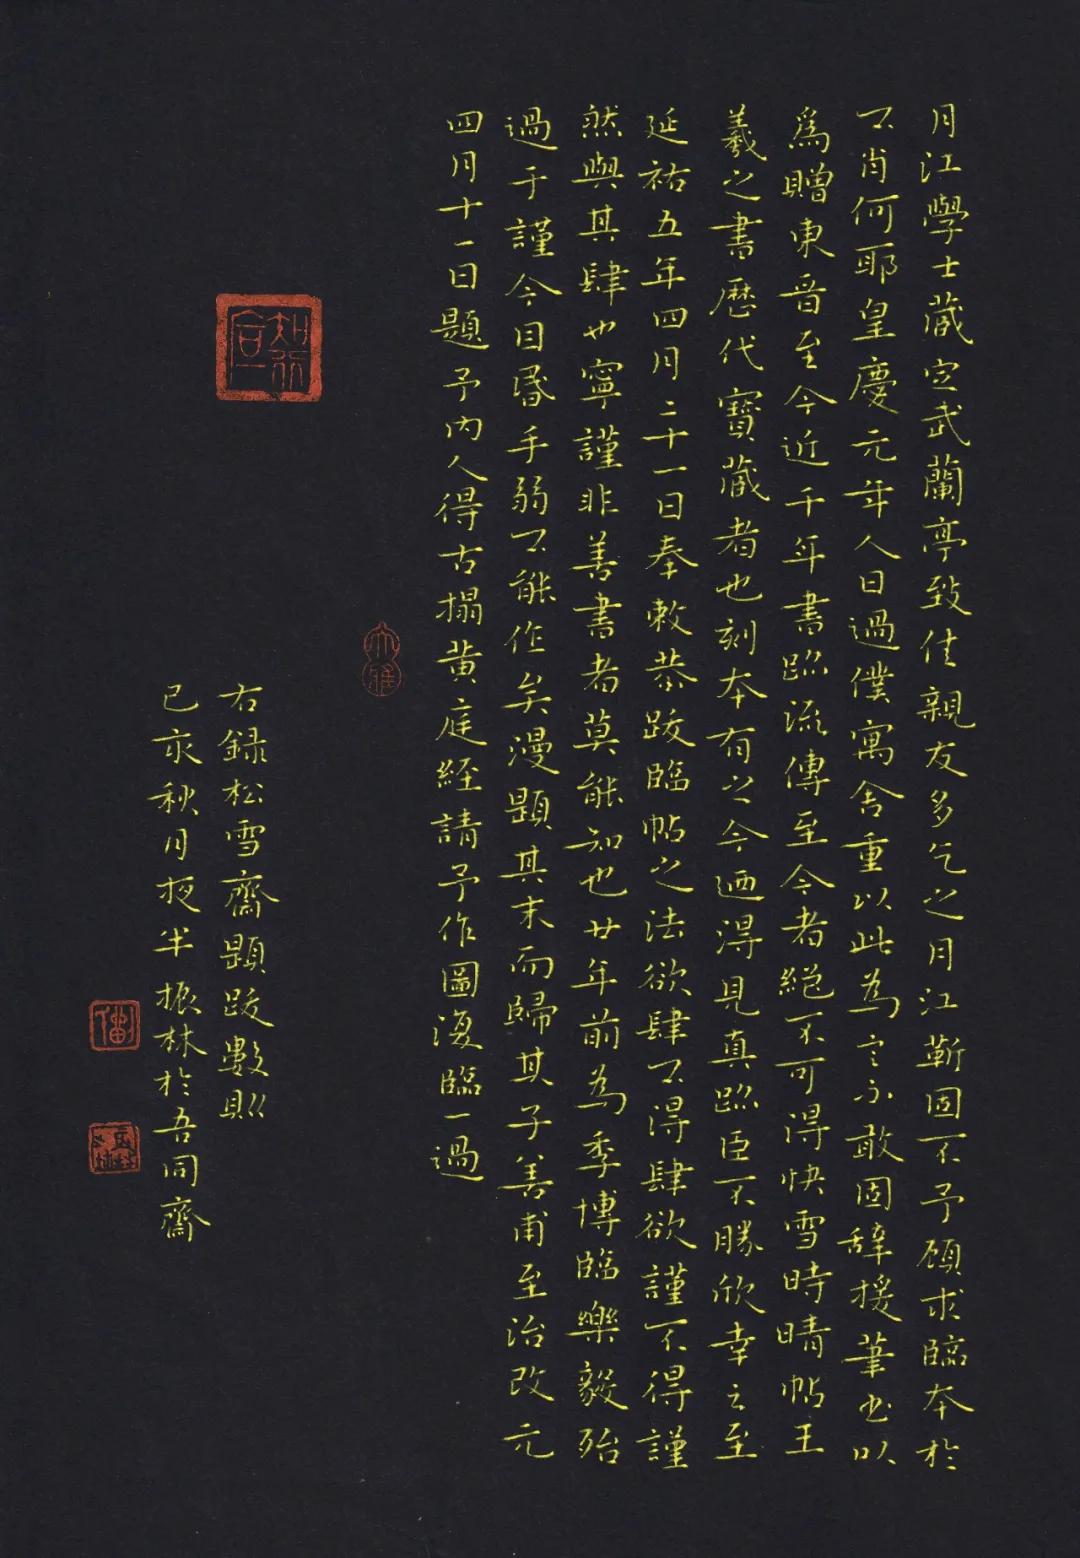 月江學士藏定武蘭亭致佳親友多乞之月江靳固不予顧求臨本於
不肖何耶皇慶元年人日過僕寓舍重以此為言不敢固辭援筆書以
爲贈東晉至今近千年書跡流傳至今者絕不可得快雪時晴帖王
羲之書歷代寶藏者也刻本有之今迺得見真跡臣不勝欣幸之至
延祐五年四月二十一日奉敕恭跋臨帖之法欲肆不得肆欲謹不得謹
然與其肆也寧謹非善書者莫能知也廿年前為季博臨樂毅殆
過于謹今目昏手弱不能作矣漫題其末而歸其子善甫至治改元
四月十一日題予內人得古搨黃庭經請予作圖復臨一過
右錄松雪齋題跋數則
己亥秋月夜半振林於吾同齋
知行合一
大雅
劉